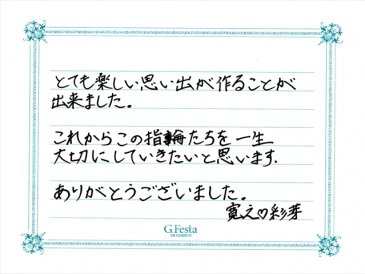 とても楽しい思い出が作ることが
出来ました。
これからこの指輪たちを一生
大切にしていきたいと思います.
ありがとうございました。
寛之♡彩芽
G.Festa